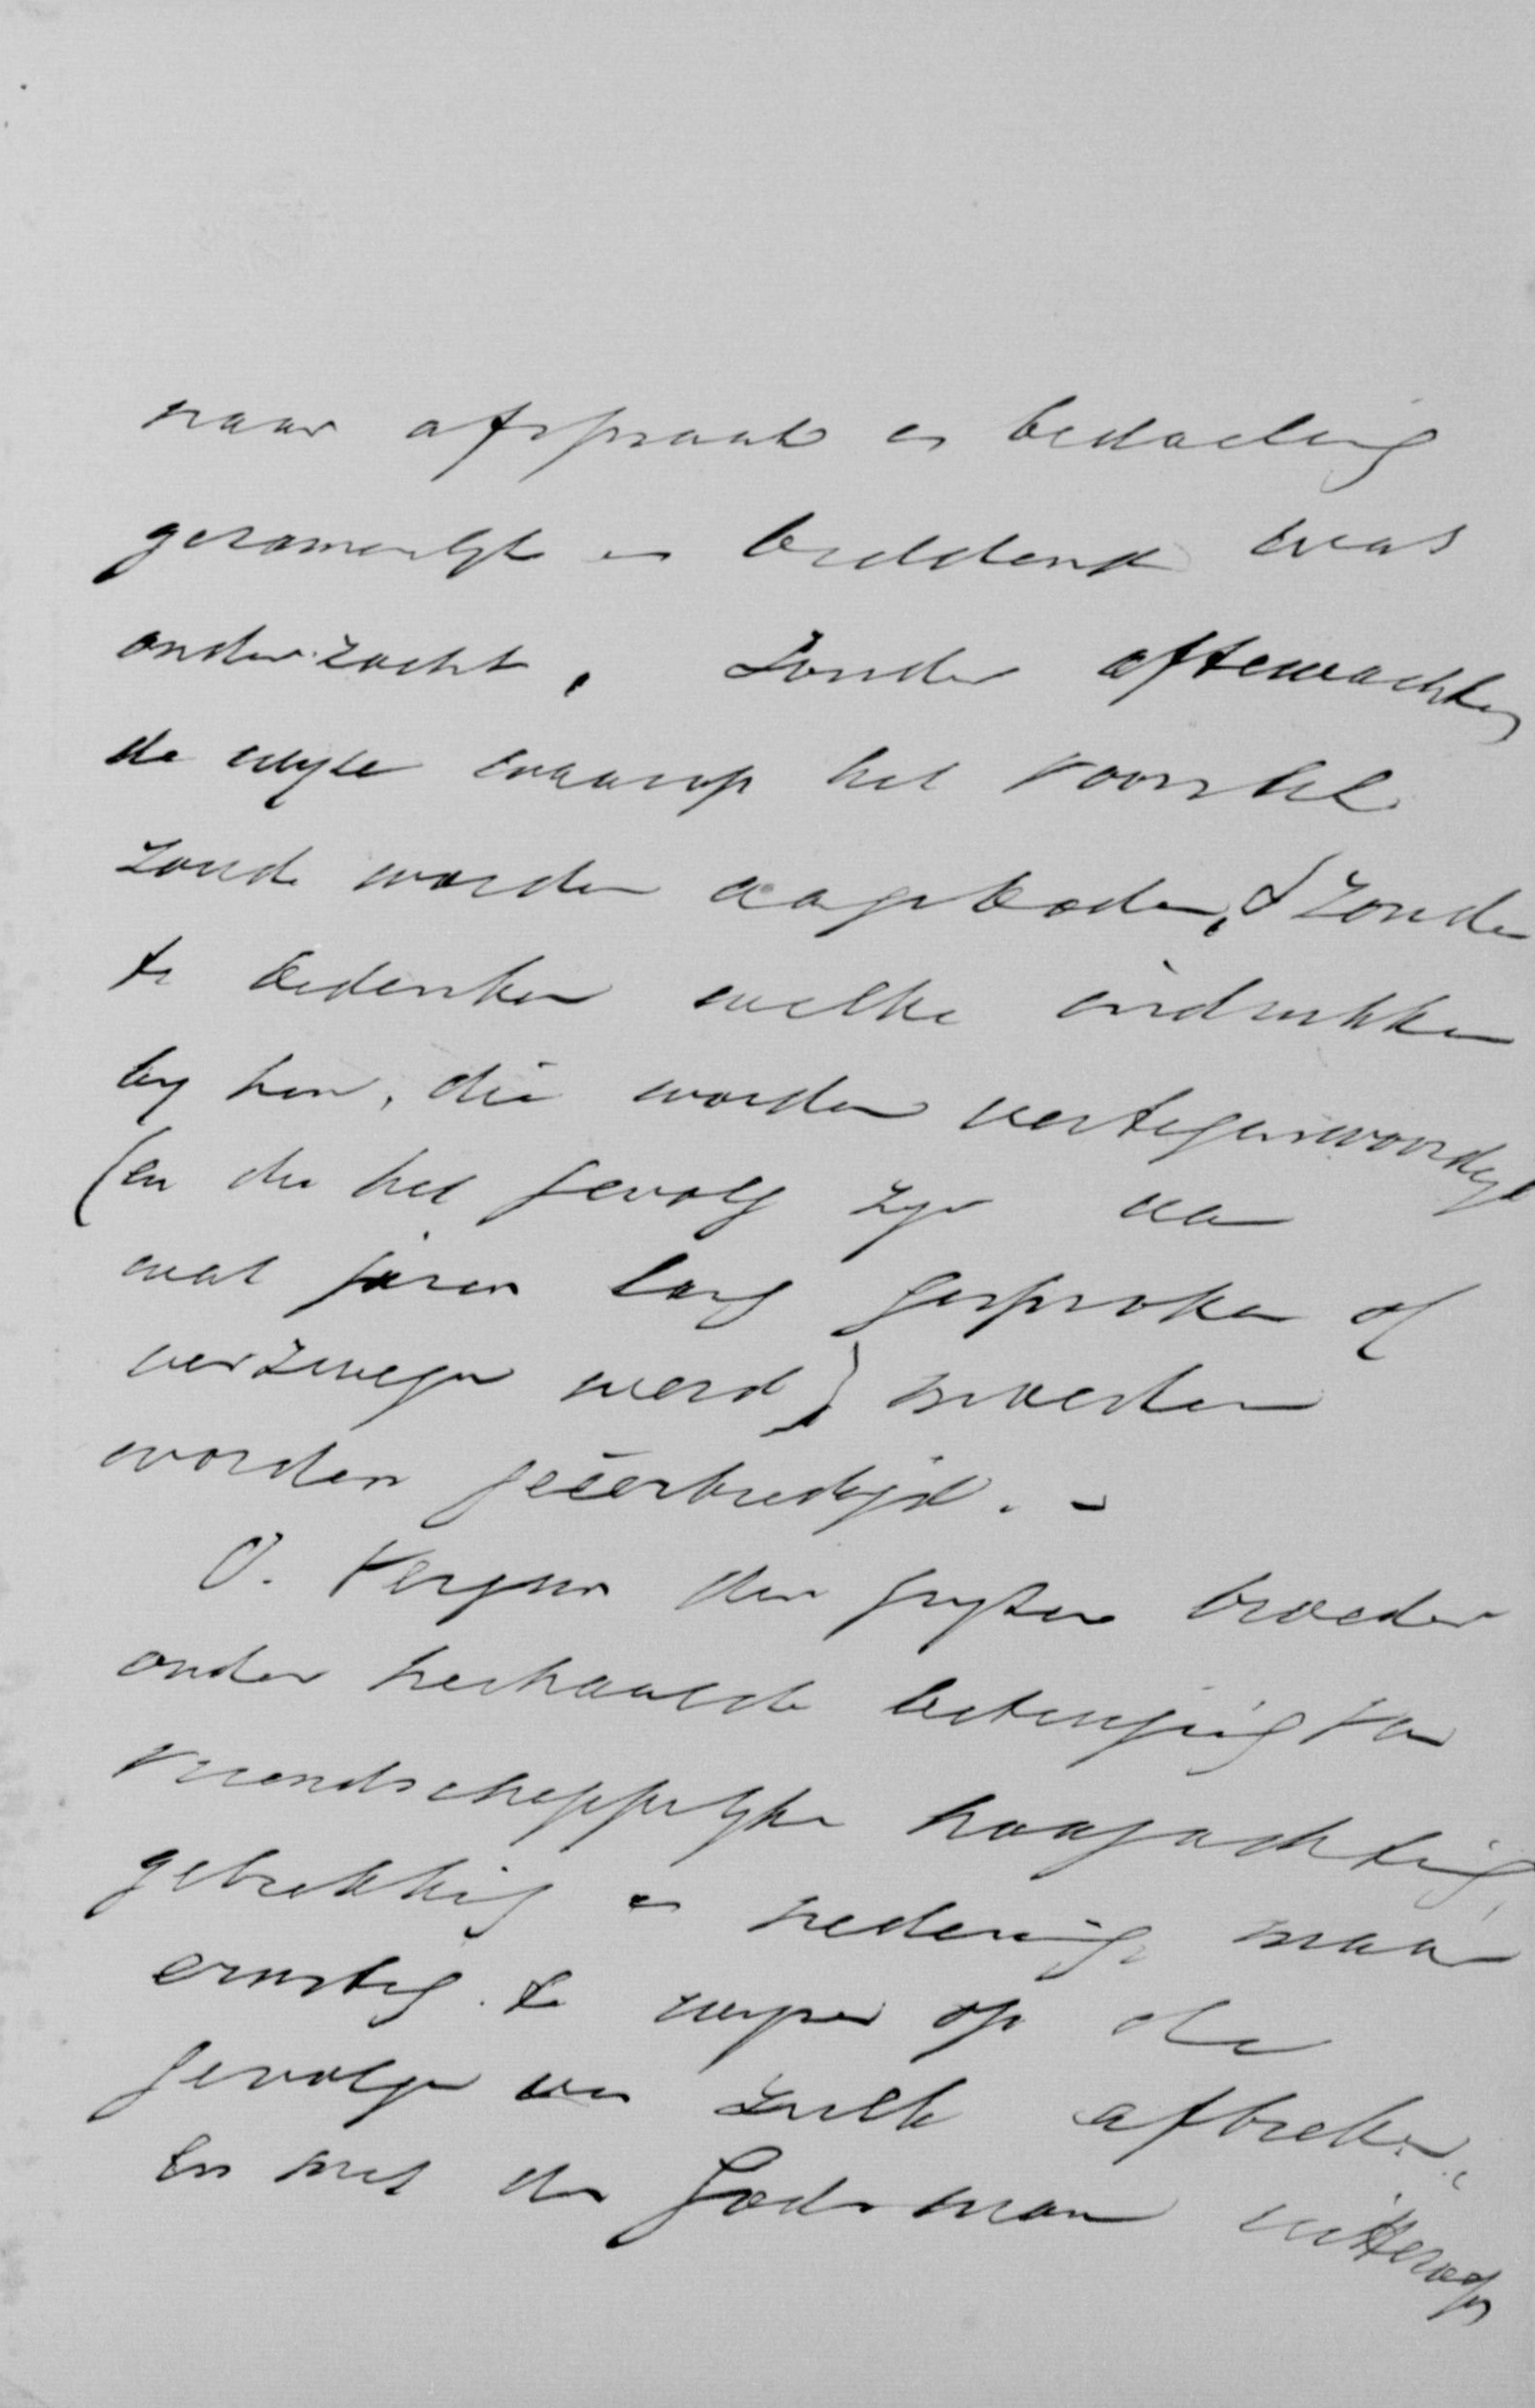 naar afspraak en bedoeling
gezamenlijk en biddend was
onderzocht, zonder aftewachten
de wijze waarop het voorstel
zoude worden aangeboden, & zonder
te bedenken welke indrukken
by hen, die worden vertegenwoordigd
(en die het gevolg zyn van
wat jaren lang gesproken of
verzwegen werd) moeten
worden geëerbiedigd. -
O. Vergun den grijzen broeder
onder herhaalde betuiging van
vriendschappelyke hoogachting,
gebrekkig en nederig, maar
ernstig te wijzen op de
gevolgen van zulk afbreken,
en met den Godsman uitteroepen